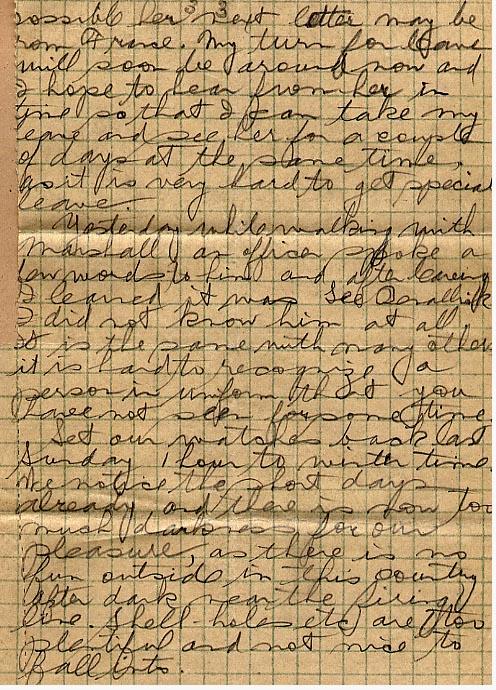 possible her next letter may be
from France. My turn for leave
will soon be around now and
I hope to hear from her in
time so that I can take my
leave and see her for a couple
of days at the same time,
as it is very hard to get special
leave.
Yesterday while walking with
Marshall an officer spoke a
few words to him and after leaving
I learned it was
I did not know him at all
It is the same with many others
it is hard to recognize a
person in uniform that you
have not seen for some time.
Set our watches back last
Sunday 1 hour to winter time.
We notice the short days
already and there is now too
much darkness for our
pleasure, as there is no
fun outside in this country
after dark near the firing
line. Shell-holes etc are too
plentiful and not nice to
fall into.